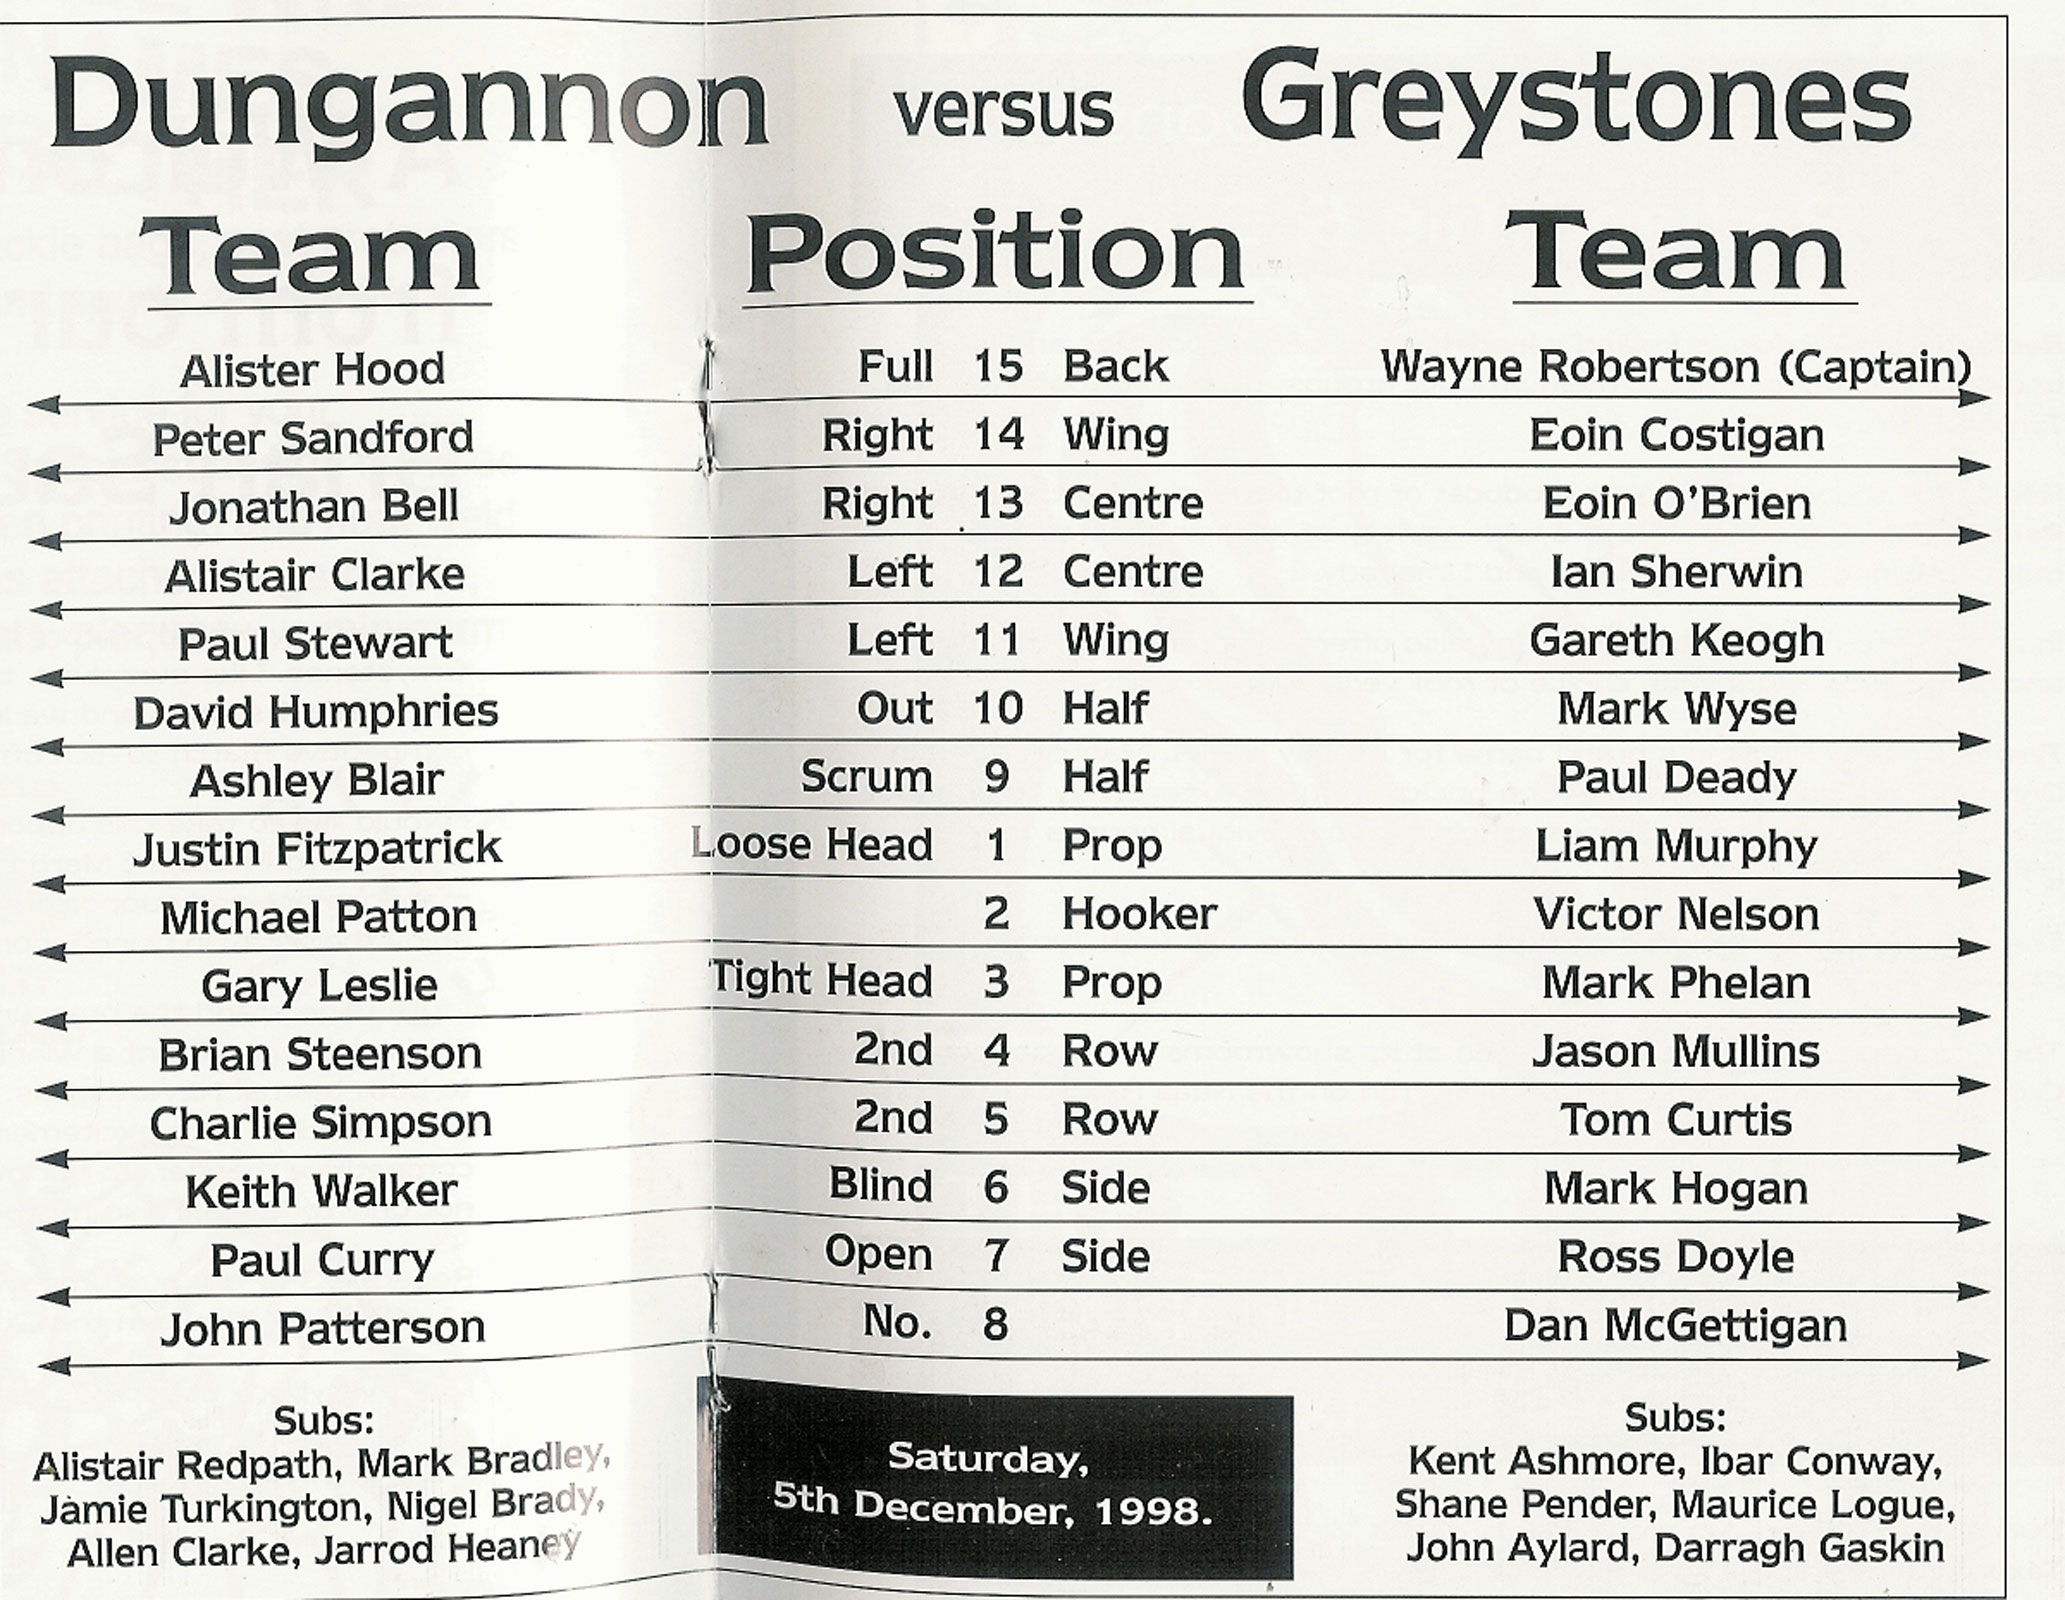 Dungannon versus Greystones
Team Position Team
Alister Hood Full 15 Back Wayne Robertson (Captain)
Peter Sandford Right 14 Wing Eoin Costigan
Jonathan Bell Right 13 Centre Eoin O'Brien
Alistair Clarke Left 12 Centre Ian Sherwin
Paul Stewart Left 11 Wing Gareth Keogh
David Humphries Out 10 Half Mark Wyse
Ashley Blair Scrum 9 Half Paul Deady
Justin Fitzpatrick Loose Head 1 Prop Liam Murphy
Michael Patton 2 Hooker Victor Nelson
Gary Leslie Tight Head 3 Prop Mark Phelan
Brian Steenson 2nd 4 Row Jason Mullins
Charlie Simpson 2nd 5 Row Tom Curtis
Keith Walker Blind 6 Side Mark Hogan
Paul Curry Open 7 Side Ross Doyle
John Patterson No. 8 Dan McGettigan
Subs:
Alistair Redpath, Mark Bradley,
Jamie Turkington, Nigel Brady,
Allen Clarke, Jarrod Heaney
Saturday,
5th December, 1998.
Subs:
Kent Ashmore, Ibar Conway,
Shane Pender, Maurice Logue,
John Aylard, Darragh Gaskin